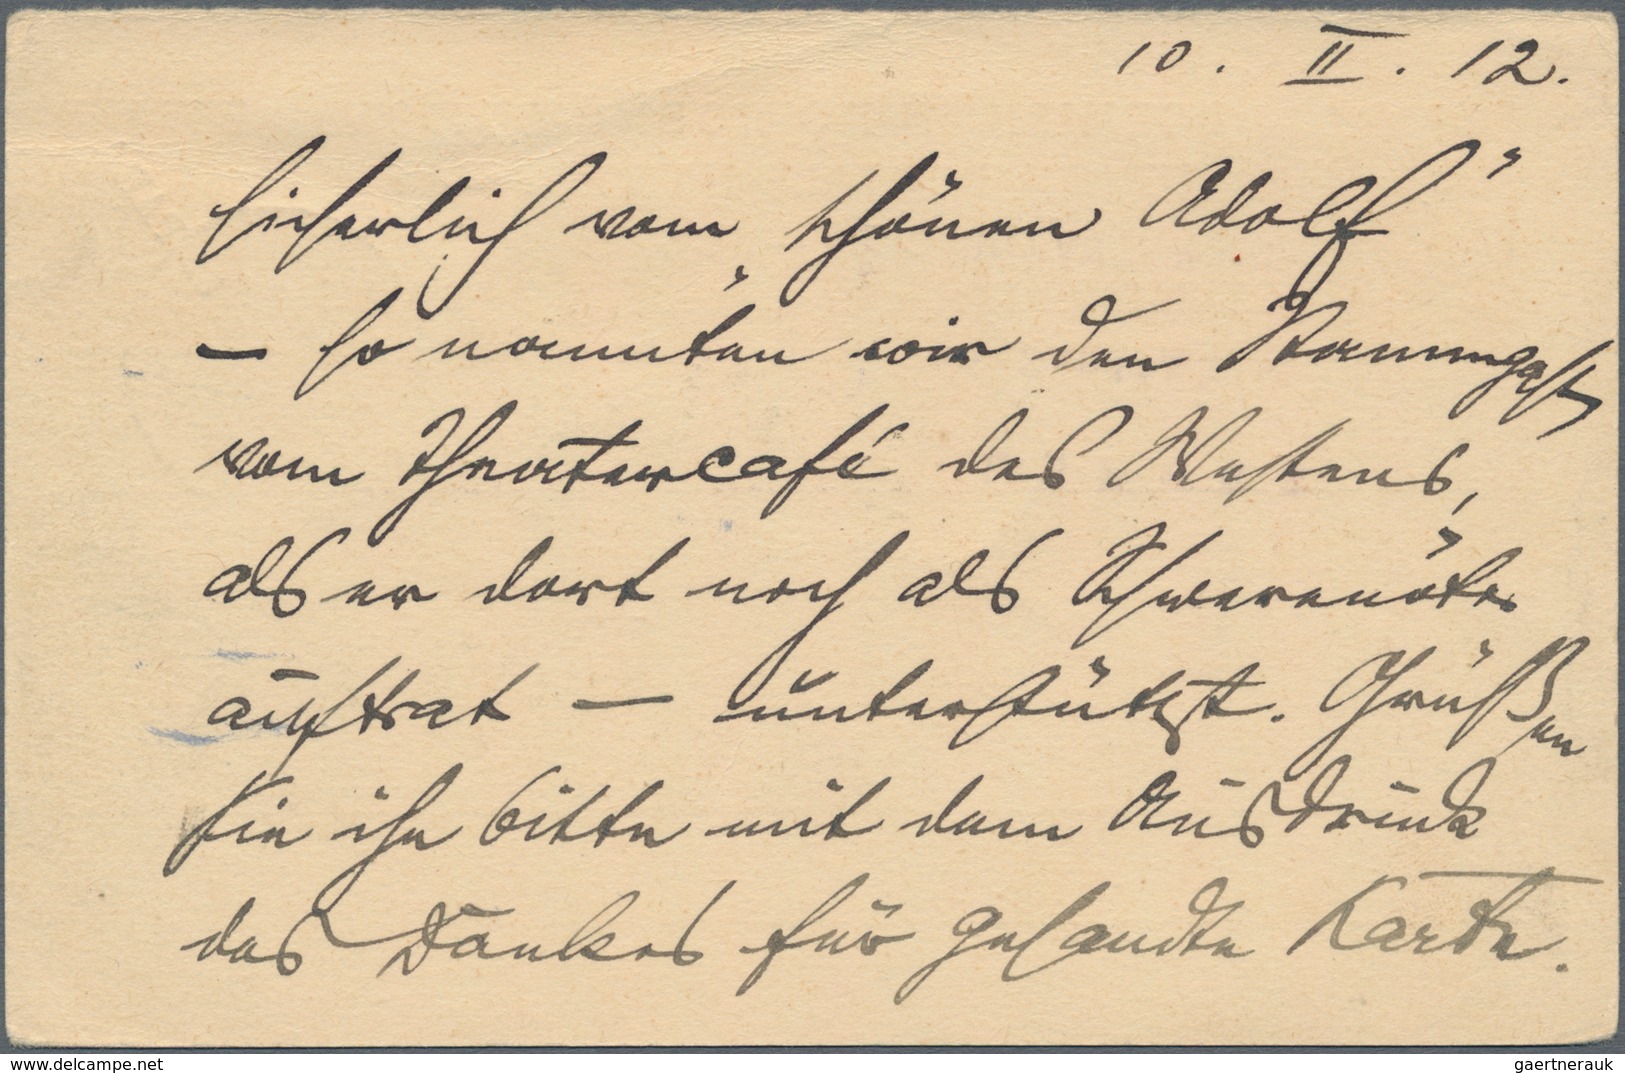 10. II. 12.
sicherlich vom „schönen Adolf"
— so nannten wir den Stammgast
vom Theatercafé des Westens,
als er dort noch als Schwerenöter
auftrat — unterstützt. Grüßen
Sie ihn bitte mit dem Ausdruck
des Dankes für gesandte Karte.
www.delcampe.net
gaertnerauk